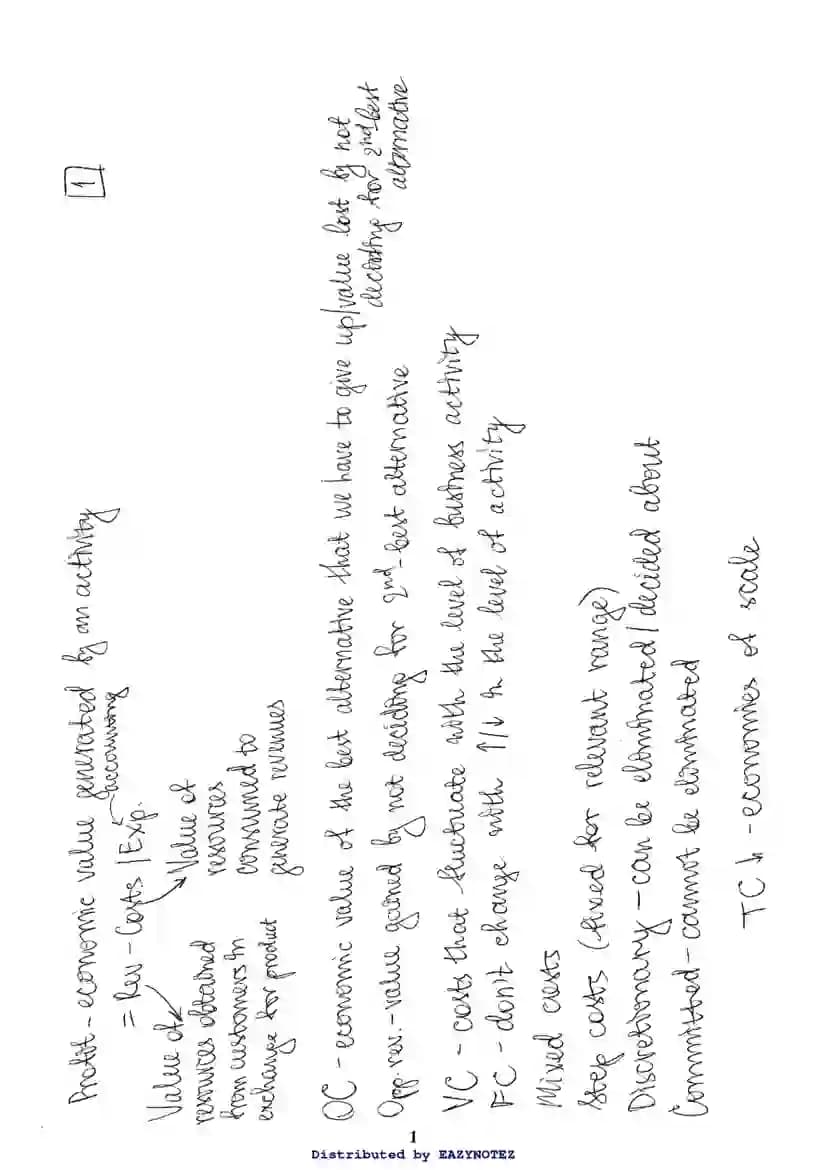 1
Profit - economic value generated by an activity
= Rev - Costs / Exp.
accounting
Value of
resources obtained
from customers in
exchange for product
Value of
resources
consumed to
generate revenues
OC - economic value of the best alternative that we have to give up/value lost by not
deciding for 2nd best
alternative
Opp. rev. - value gained by not deciding for 2nd-best alternative
VC - costs that fluctuate with the level of business activity
FC - don't change with ↑/↓ in the level of activity
Mixed costs
Step costs (fixed for relevant range)
Discretionary - can be eliminated / decided about
Committed - cannot be eliminated
TC ↓ - economies of scale
1
Distributed by EAZYNOTEZ